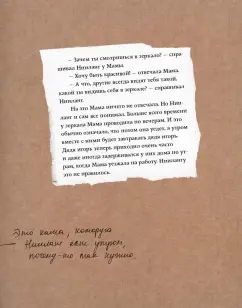 – Зачем ты смотришься в зеркало? – спра-
шивал Нинланг у Мамы.
– Хочу быть красивой! – отвечала Мама.
– А что, другие всегда видят тебя такой,
какой ты видишь себя в зеркале? – спрашивал
Нинланг.
На это Мама ничего не отвечала. Но Нин-
ланг и сам все понимал. Больше всего времени
у зеркала Мама проводила по вечерам. И это
обычно означало, что потом она уедет, а утром
вместе с ними будет завтракать дядя Игорь.
Дядя Игорь теперь приходил очень часто
и даже иногда задерживался у них дома по ут-
рам, когда Мама уезжала на работу. Нинлангу
это не нравилось.
Это каша, которую
Нинланг ест утром,
потому что так нужно.